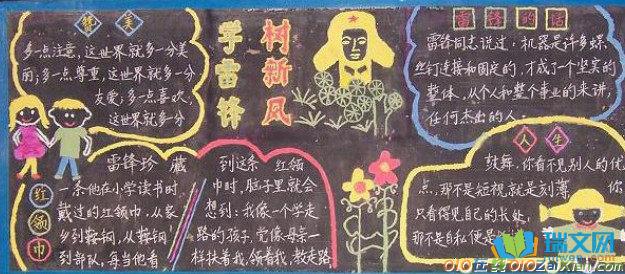 赞美
多一点注意，这世界就多一分美
的；多一点尊重，这世界就多一分
友爱；多一点喜欢，
这世界就多一分
学雷锋
树新风
雷锋的话
雷锋同志说过：机器是许多螺
丝钉连接和固定的，才成了一个坚实的
整体，从个人和整个事业的来讲，
任何杰出的人。
人生
鼓舞，你看不见别人的优
点，那不是短视就是刻薄， 你
只看得见自己的长处，
那不是自私便是
雷锋珍藏
红领巾
一条他在小学读书时，
戴过的红领巾，从家
乡到鞍钢，从鞍钢
到部队，每当他看
到这条 红领
巾时，脑子里就会
想到：我像一个学走
路的孩子，党像母亲一
样扶着我，领着我，教走路
瑞文网